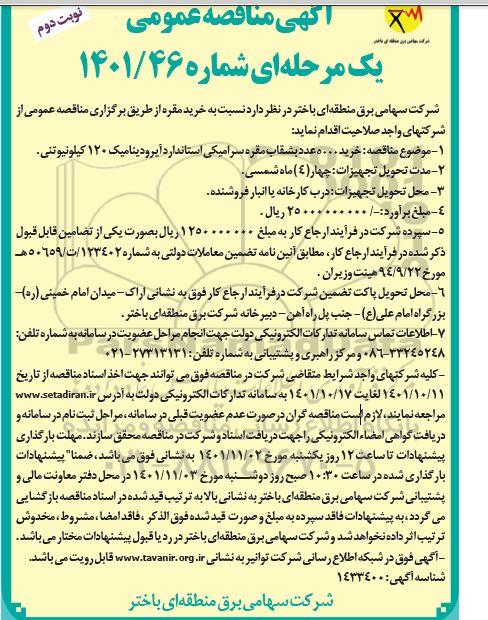 آگهی مناقصه عمومی
نوبت دوم
شرکت سهامی برق منطقه ای باختر
یک مرحله‌ای شماره ۱۴۰۱/۴۶
شرکت سهامی برق منطقه‌ای باختر در نظر دارد نسبت به خرید مقره از طریق برگزاری مناقصه عمومی از
شرکتهای واجد صلاحیت اقدام نماید:
۱- موضوع مناقصه: خرید ۵۰۰۰ عدد بشقاب مقره سرامیکی استاندارد آیرودینامیک ۱۲۰ کیلونیوتنی.
۲- مدت تحویل تجهیزات: چهار (۴) ماه شمسی.
۳- محل تحویل تجهیزات: درب کارخانه یا انبار فروشنده.
۴- مبلغ برآورد: -/۲۵۰۰۰۰۰۰۰۰۰ ریال.
۵- سپرده شرکت در فرآیند ارجاع کار به مبلغ ۱۲۵۰۰۰۰۰۰۰ ریال بصورت یکی از تضامین قابل قبول
ذکر شده در فرآیند ارجاع کار، مطابق آئین نامه تضمین معاملات دولتی به شماره ۱۲۳۴۰۲/ت/۵۰۶۵۹هـ
مورخ ۹۴/۹/۲۲ هیئت وزیران.
۶- محل تحویل پاکت تضمین شرکت در فرآیند ارجاع کار فوق به نشانی اراک - میدان امام خمینی (ره) -
بزرگراه امام علی(ع) - جنب پل راه آهن - دبیرخانه شرکت برق منطقه‌ای باختر.
۷- اطلاعات تماس سامانه تدارکات الکترونیکی دولت جهت انجام مراحل عضویت در سامانه به شماره تلفن:
۳۳۲۴۵۲۴۸-۰۸۶ و مرکز راهبری و پشتیبانی به شماره تلفن: ۲۷۳۱۳۱۳۱-۰۲۱
- کلیه شرکتهای واجد شرایط متقاضی شرکت در مناقصه فوق می توانند جهت اخذ اسناد مناقصه از تاریخ
۱۴۰۱/۱۰/۱۱ لغایت ۱۴۰۱/۱۰/۱۷ به سامانه تدارکات الکترونیکی دولت به آدرس www.setadiran.ir
مراجعه نمایند، لازم است مناقصه گران در صورت عدم عضویت قبلی در سامانه، مراحل ثبت نام در سامانه و
دریافت گواهی امضاء الکترونیکی را جهت دریافت اسناد و شرکت در مناقصه محقق سازند. مهلت بارگذاری
پیشنهادات تا ساعت ۱۲ روز یکشنبه مورخ ۱۴۰۱/۱۱/۰۲ به نشانی فوق می باشد، ضمنا" پیشنهادات
بارگذاری شده در ساعت ۱۰:۳۰ صبح روز دوشنبه مورخ ۱۴۰۱/۱۱/۰۳ در محل دفتر معاونت مالی و
پشتیبانی شرکت سهامی برق منطقه‌ای باختر به نشانی بالا به ترتیب قید شده در اسناد مناقصه بازگشایی
می گردد، به پیشنهادات فاقد سپرده به مبلغ و صورت قید شده فوق الذکر، فاقد امضا، مشروط، مخدوش
ترتیب اثر داده نخواهد شد و شرکت سهامی برق منطقه‌ای باختر در رد یا قبول پیشنهادات مختار می باشد.
- آگهی فوق در شبکه اطلاع رسانی شرکت توانیر به نشانی www.tavanir.org.ir قابل رویت می باشد.
شناسه آگهی: ۱۴۳۳۴۰۰
شرکت سهامی برق منطقه‌ای باختر